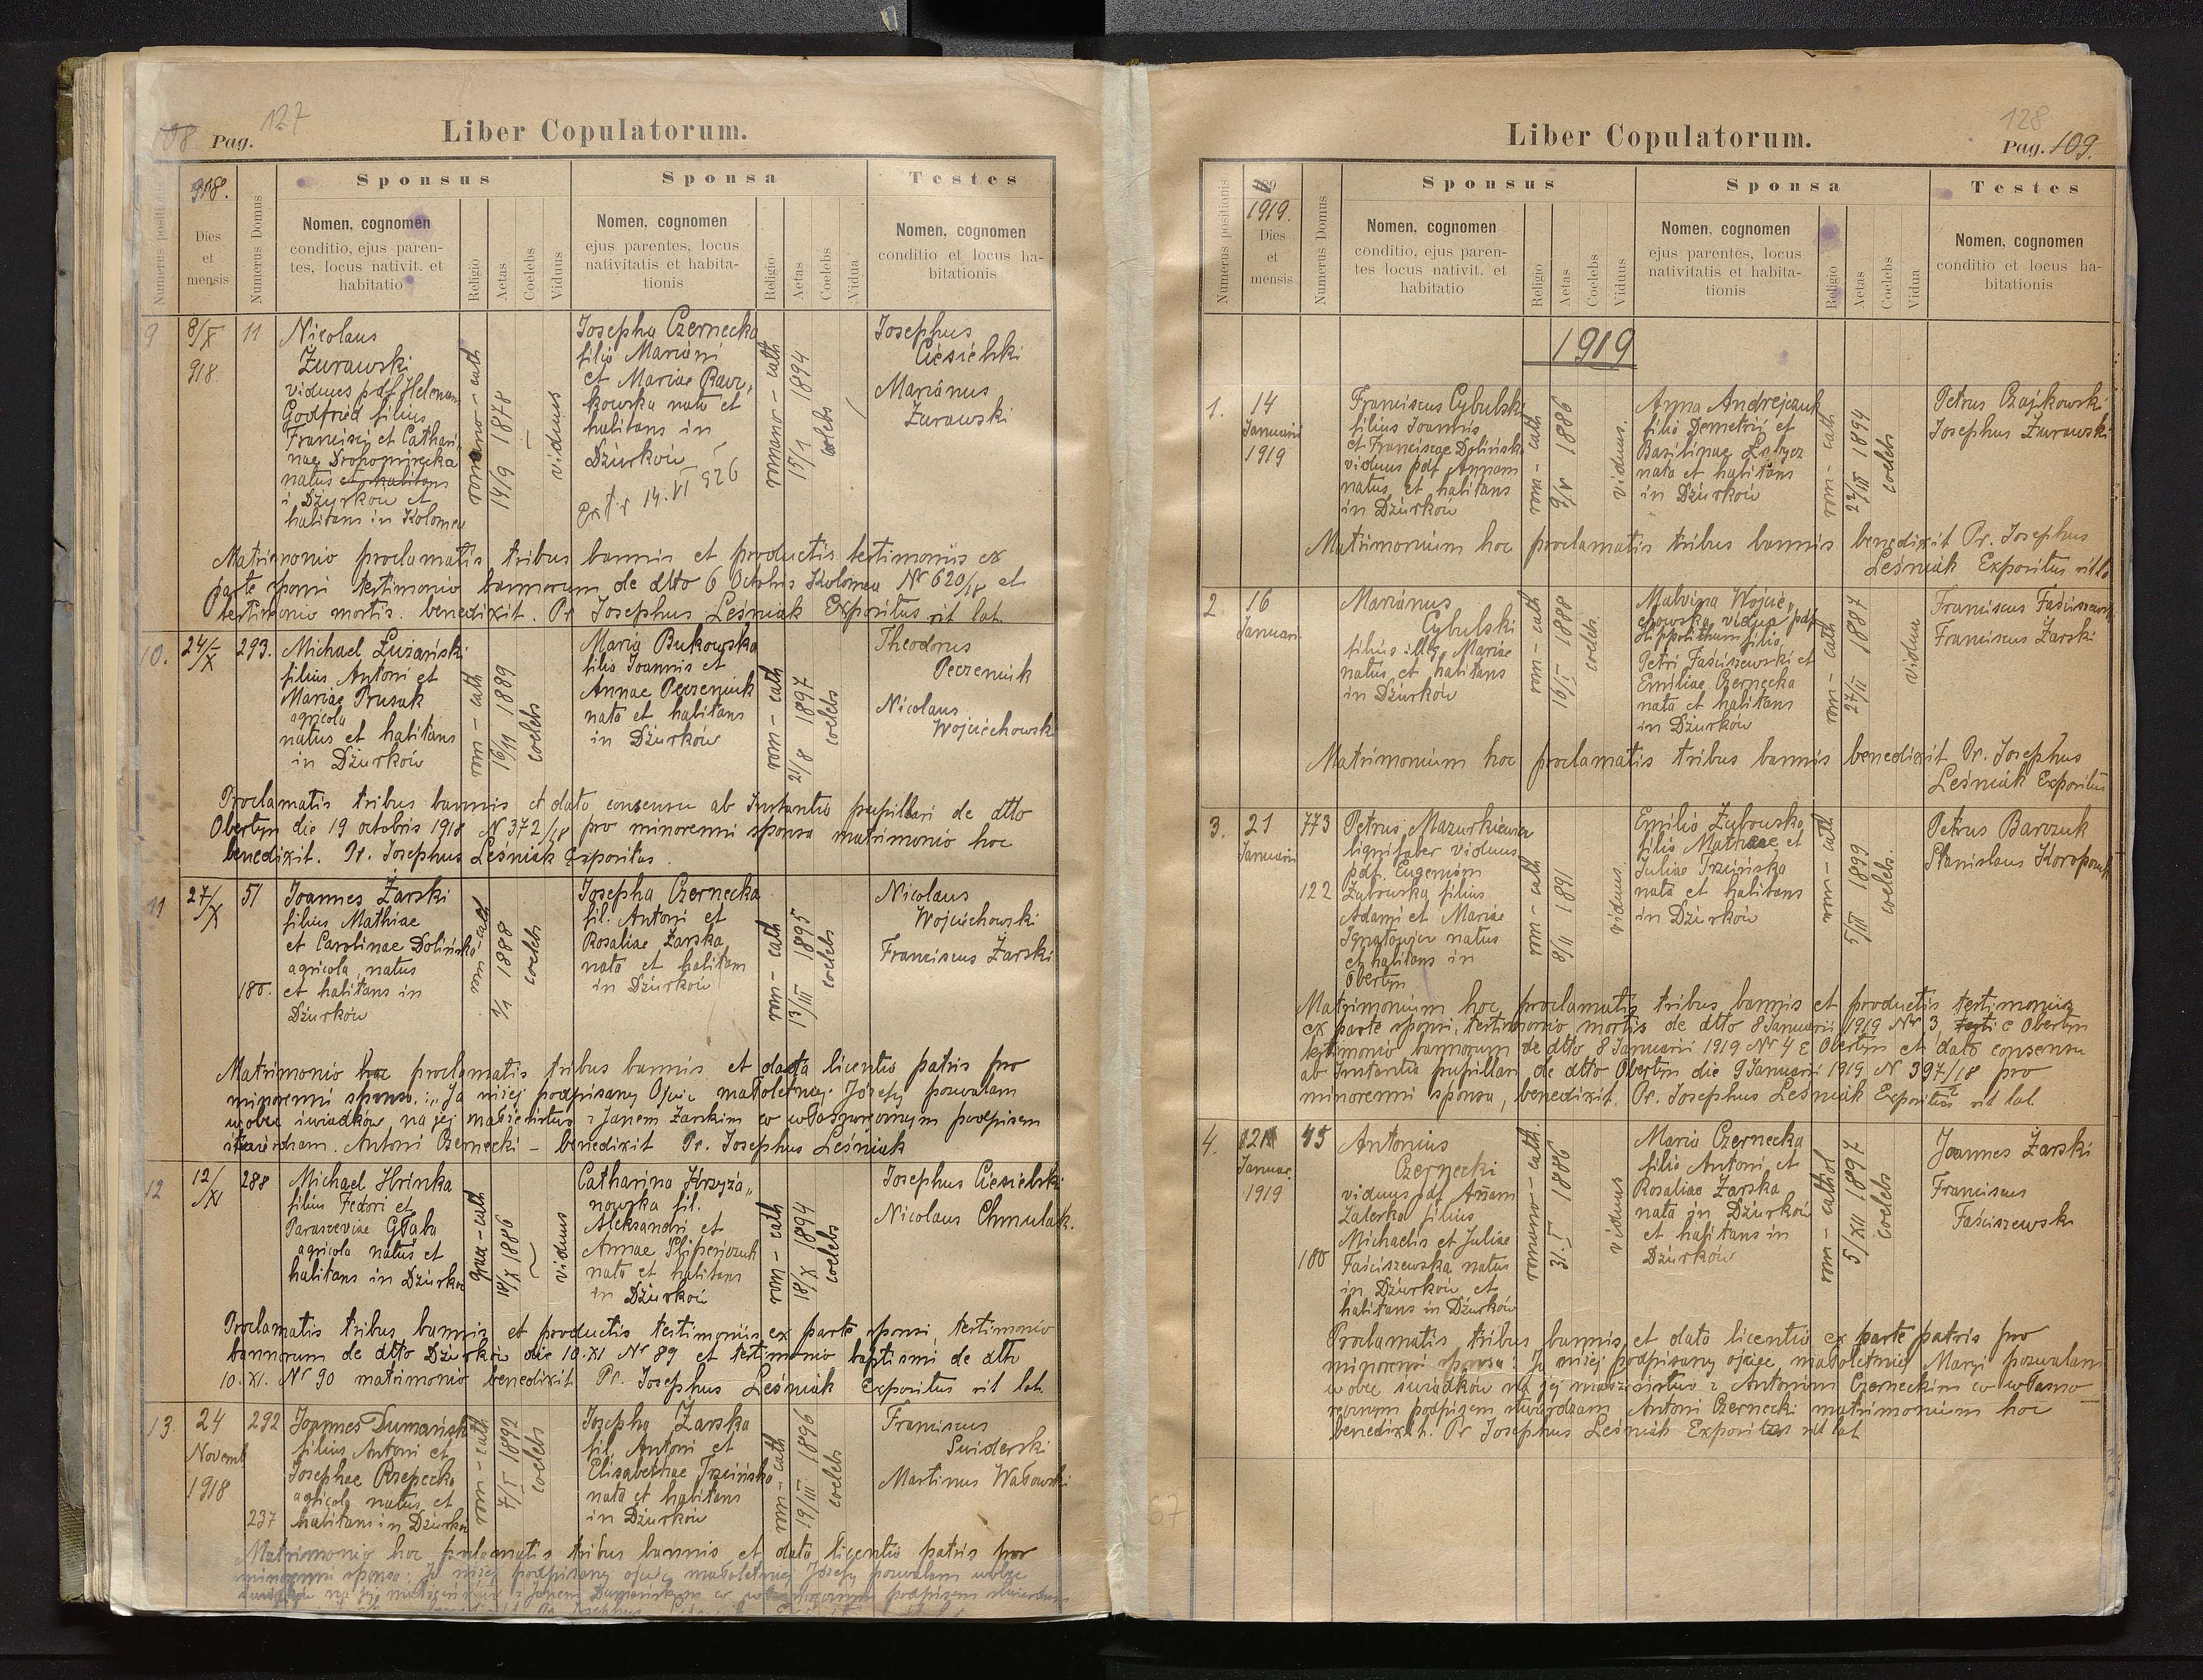 108. Pag.
127
Liber Copulatorum.
Numerus positionis
918.
Dies
et
mensis
Numerus Domus
Sponsus
Nomen, cognomen
conditio, ejus paren-
tes, locus nativit. et
habitatio
Religio
Aetas
Coelebs
Viduus
Sponsa
Nomen, cognomen
ejus parentes, locus
nativitatis et habita-
tionis
Religio
Aetas
Coelebs
Vidua
Testes
Nomen, cognomen
conditio et locus ha-
bitationis
9
8/X
918
11
Nicolaus
Żurawski
viduus pdf Helenam
Godfried filius
Francisci et Cathari,
nae Dropomirecka
natus et habitans
i Dżurków et
habitans in Kolomea
romano - cath
14/9 1878
viduus
Josepha Czernecka
filia Mariani
et Mariae Racz,
kowska nata et
habitans in
Dżurków
14.VI 926
romano - cath
15/1 1894
coelebs
Josephus
Ciesielski
Marianus
Żurawski
Matrimonio proclamatis tribus bannis et productis testimoniis ex
parte sponsi testimonio bannorum de dtto 6 Octobris Kolomea Nr 620/18 et
testimonio mortis. benedixit. Pr Josephus Leśniak Expositus rit lat.
10.
24/X
293.
Michael Łużański
filius Antoni et
Mariae Prusak
agricola
natus et habitans
in Dżurków
rom - cath
16/11 1889
coelebs
Maria Bukowska
filia Joannis et
Annae Peczeniuk
nata et habitans
in Dżurków
rom - cath
21/8 1897
coelebs
Theodorus
Peczeniuk
Nicolaus
Wojciechowski
Proclamatis tribus bannis et dato consensu ab Instantia pupillari de dtto
Obertyn die 19 octobris 1918 N 372/18 pro minorenni sponsa matrimonio hoc
benedixit. Pr. Josephus Leśniak Expositus.
11
27/X
51
180.
Joannes Żarski
filius Mathiae
et Carolinae Dolińska
agricola, natus
et habitans in
Dżurków
rom - cath
1/1 1888
coelebs
Josepha Czernecka
fil. Antoni et
Rosaliae Żarska
nata et habitans
in Dżurków
rom - cath
13/III 1895
coelebs
Nicolaus
Wojciechowski
Franciscus Żarski
Matrimonio hoc proclamatis tribus bannis et data licentia patris pro
minorenni sponsa: „Ja niżej podpisany Ojciec małoletniej Józefy pozwalam
wobec świadków na jej małżeństwo z Janem Żarskim co własnoręcznym podpisem
stwierdzam. Antoni Czernecki - benedixit Pr. Josephus Leśniak
12
12/XI
288
Michael Hrinka
filius Fedori et
Parasceviae Głaba
agricola natus et
habitans in Dżurków
graec - cath
18/X 1886
viduus
Catharina Krzyża„
nowska fil.
Aleksandri et
Annae Slipeńczuk
nata et habitans
in Dżurków
rom - cath
18/X 1894
coelebs
Josephus Ciesielski
Nicolaus Chmulak.
Proclamatis tribus bannis et productis testimoniis ex parte sponsi, testimonio
bannorum de dtto Dżurków die 10.XI Nr 89 et testimonio baptismi de dtto
10.XI. Nr 90 matrimonio benedixit Pr. Josephus Leśniak Expositus rit lat.
13.
24
Novemb
1918
292
237
Joannes Dumański
filius Antoni et
Josephae Rzepecka
agricola natus et
habitans in Dżurków
rom - cath
7/I 1892
coelebs
Josepha Żarska
fil. Antoni et
Elisabethae Trzcińska
nata et habitans
in Dżurków
rom - cath
19/III 1896
coelebs
Franciscus
Świderski
Martinus Wasowski
Matrimonio hoc proclamatis tribus bannis et data licentia patris pro
minorenni sponsa: Ja niżej podpisany ojciec małoletniej Józefy pozwalam wobec
świadków na jej małżeństwo z Janem Dumańskim co własnoręcznym podpisem stwierdzam
128
Pag. 109.
Liber Copulatorum.
Numerus positionis
1919.
Dies
et
mensis
Numerus Domus
Sponsus
Nomen, cognomen
conditio, ejus paren-
tes locus nativit. et
habitatio
Religio
Aetas
Coelebs
Viduus
Sponsa
Nomen, cognomen
ejus parentes, locus
nativitatis et habita-
tionis
Religio
Aetas
Coelebs
Vidua
Testes
Nomen, cognomen
conditio et locus ha-
bitationis
1919
1.
14
Januarii
1919
Franciscus Cybulski
filius Joannis
et Franciscae Dolińska
viduus pdf Annam
natus et habitans
in Dżurków
rom - cath
9/V 1886
viduus.
Anna Andrejczuk
filia Demetrii et
Basilinae
nata et habitans
in Dżurków
rom - cath
22/III 1894
coelebs
Petrus Czajkowski
Josephus Żurawski
Matrimonium hoc proclamatis tribus bannis benedixit Pr. Josephus
Leśniak Expositus rit la
2
16
Januari
Marianus
Cybulski
filius illg Mariae
natus et habitans
in Dżurków
rom - cath
16/I 1888
coelebs
Malvina Wojcie„
chowska vidua pdf
Hippolithum filia
Petri Faściszewski et
Emiliae Czernecka
nata et habitans
in Dżurków
rom - cath
27/II 1887
vidua
Franciscus Faściszewski
Franciscus Żarski
Matrimonium hoc proclamatis tribus bannis benedixit Pr. Josephus
Leśniak Expositus
3.
21
Januarii
773
122
Petrus Mazurkiewicz
lignifaber viduus
pdf. Eugeniam
Zubowska filius
Adami et Mariae
Ignatowicz natus
et habitans in
Obertyn
rom - cath
8/II 1891
viduus
Emilia Zubowska
filia Mathiae et
Juliae Trzcińska
nata et habitans
in Dżurków
rom - cath
5/III 1899
coelebs.
Petrus Barczuk
Stanislaus
Matrimonium hoc proclamatis tribus bannis et productis testimoniis
ex parte sponsi, testimonio mortis de dtto 8 Januarii 1919 Nr 3 testi e Obertyn
testimonio bannorum de dtto 8 Januarii 1919 Nr 4 e Obertyn et dato consensu
ab Instantia pupillari de dtto Obertyn die 9 Januarii 1919 N 397/18 pro
minorenni sponsa, benedixit. Pr. Josephus Leśniak Expositus rit lat.
4.
21
Januar.
1919
45
180
Antonius
Czernecki
viduus pdf Annam
Zalerka filius
Michaelis et Juliae
Faściszewska natus
in Dżurków et
habitans in Dżurków
romano - cath.
31.I 1886
viduus
Maria Czernecka
filia Antoni et
Rosaliae Żarska
nata in Dżurków
et habitans in
Dżurków
rom - cathol
5/XII 1897
coelebs
Joannes Żarski
Franciscus
Faściszewski
Proclamatis tribus bannis et data licentia ex parte patris pro
minorenni sponsa: Ja niżej podpisany ojciec małoletniej Maryi pozwalam
wobec świadków na jej małżeństwo z Antonim Czerneckim co własno
ręcznym podpisem stwierdzam Antoni Czernecki matrimonium hoc
benedixit. Pr Josephus Leśniak Expositus rit lat
67